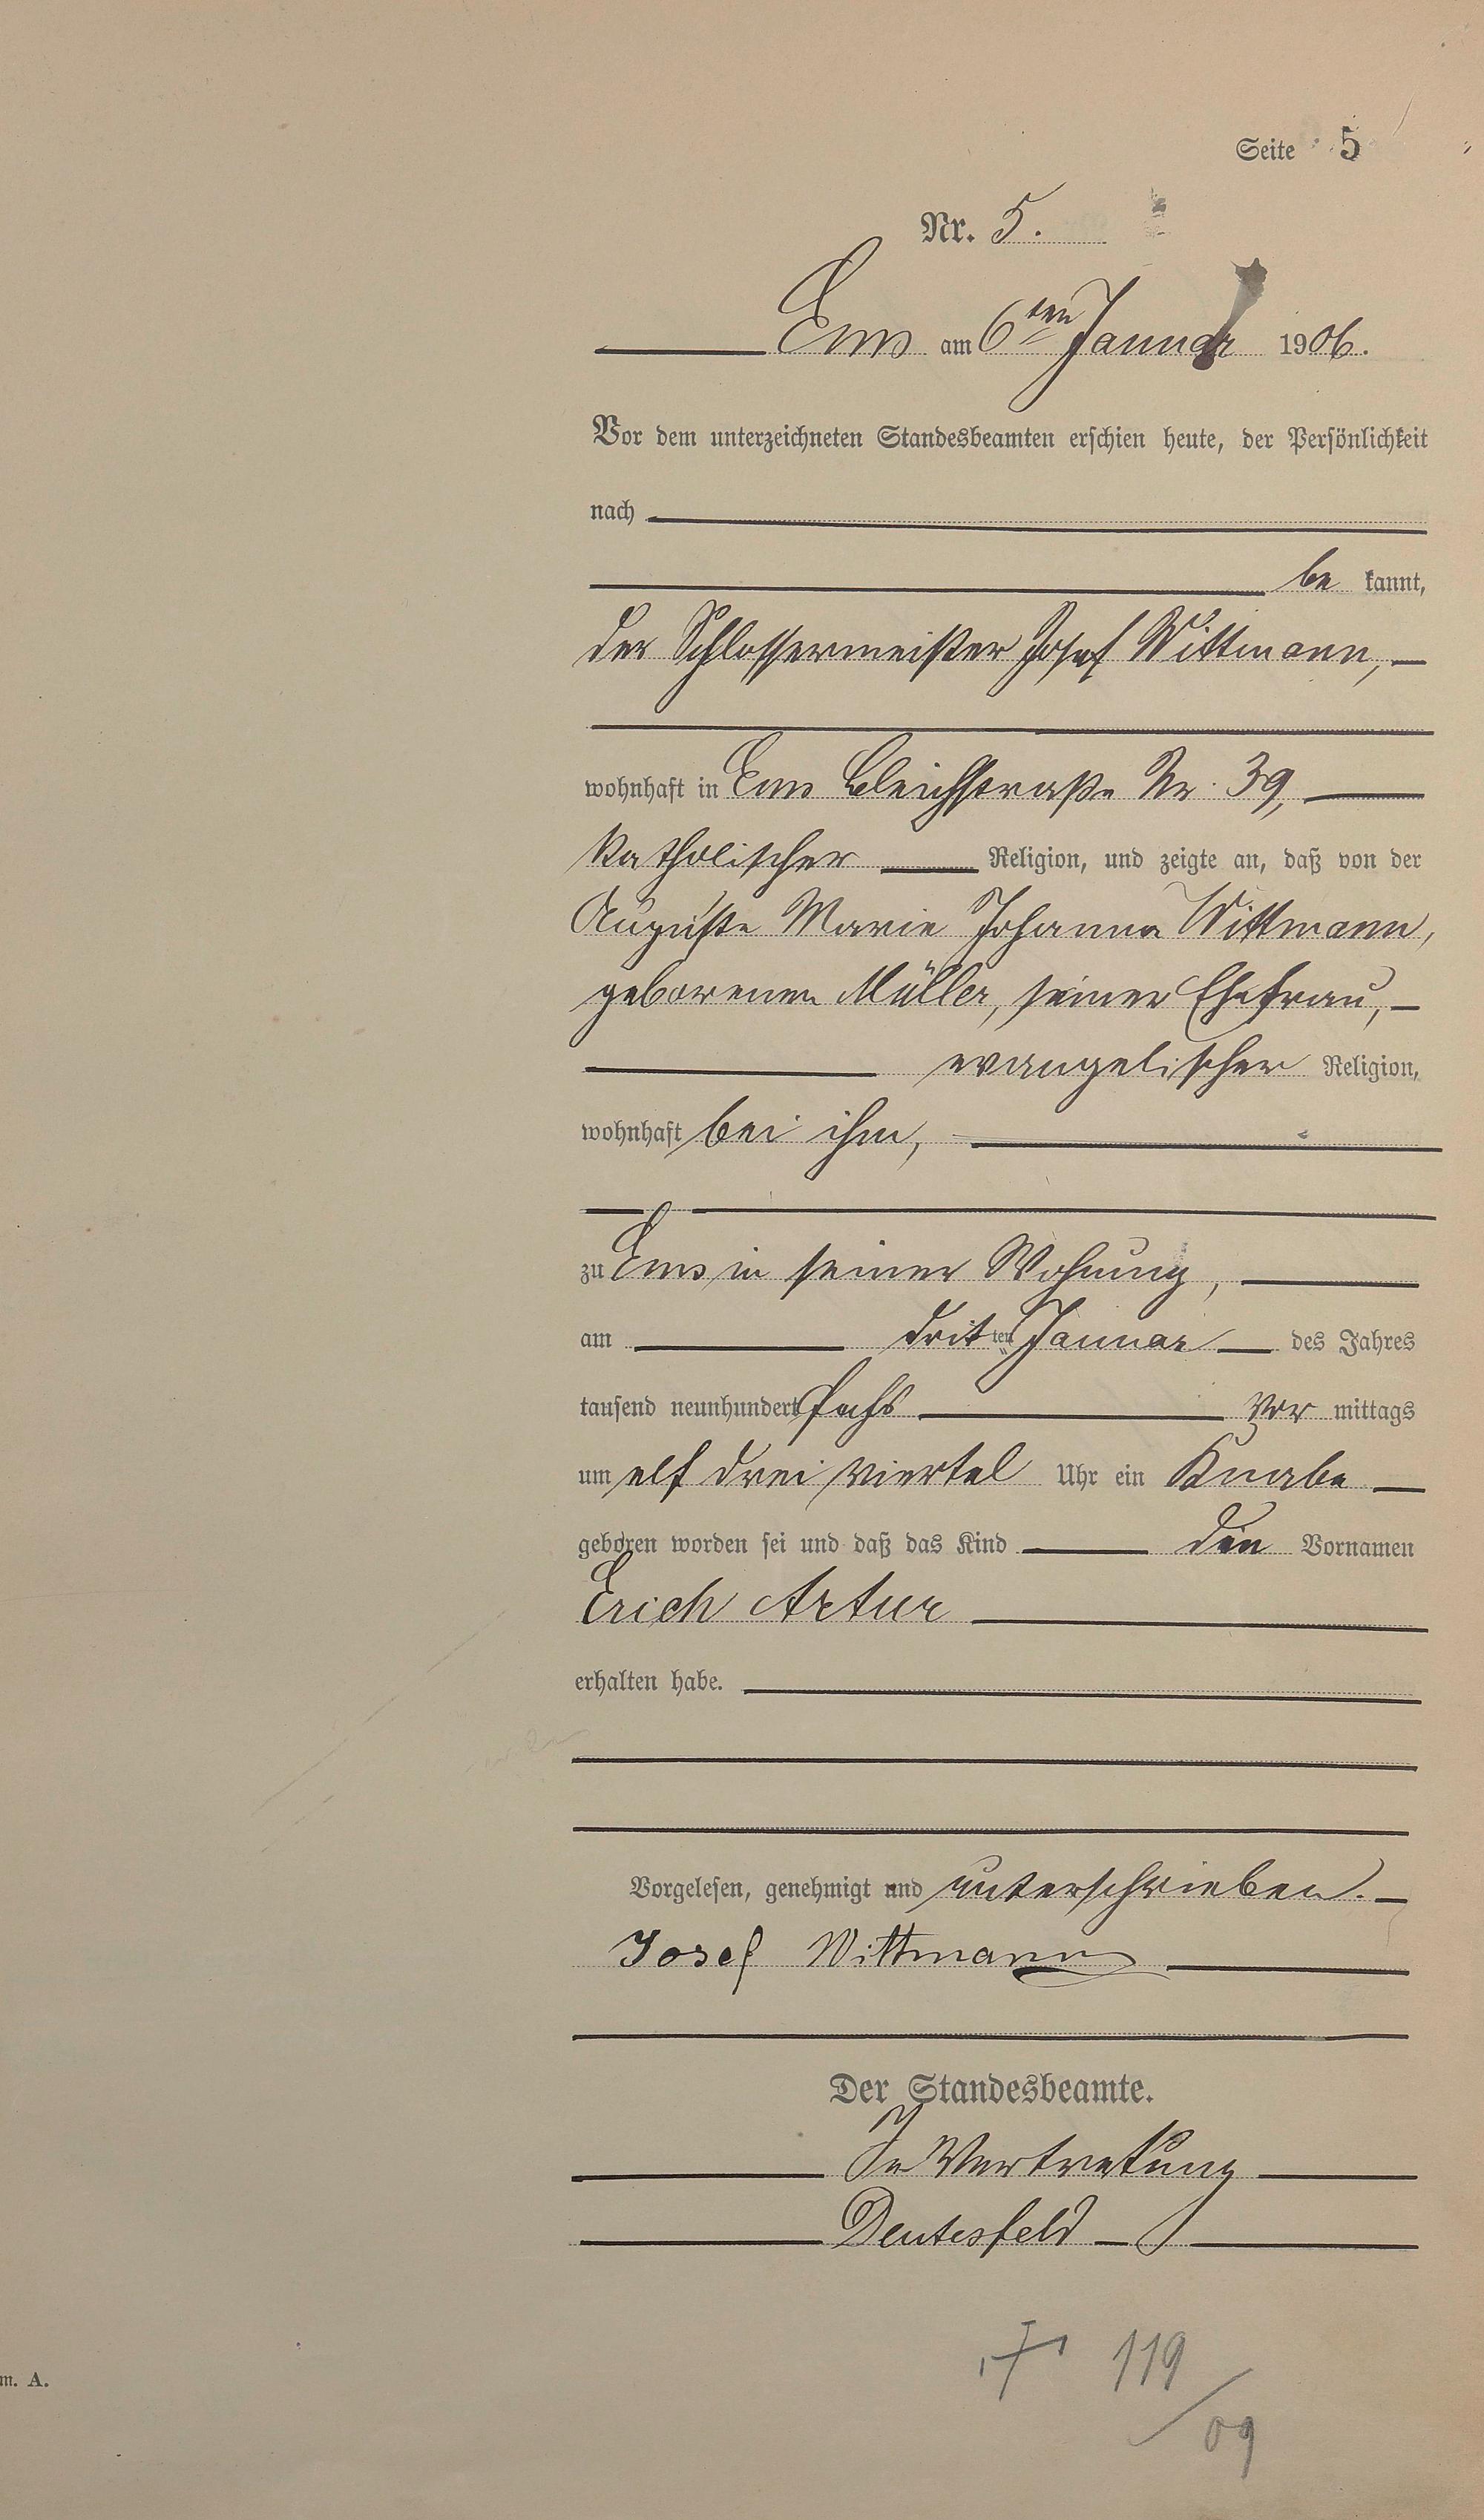 Seite 5
Nr. 5.
Ems am 6ten Januar 1906.
Vor dem unterzeichneten Standesbeamten erschien heute, der Persönlichkeit
nach
be kannt,
der Schlossermeister Josef Wittmann,
wohnhaft in Ems Bleichstraße Nr. 39,
katholischer Religion, und zeigte an, daß von der
Auguste Marie Johanna Wittmann,
geborenen Müller, seiner Ehefrau,
evangelischer Religion,
wohnhaft bei ihm,
zu Ems in seiner Wohnung,
am dritten Januar des Jahres
tausend neunhundert sechs Vor mittags
um elf drei viertel Uhr ein Knabe
geboren worden sei und daß das Kind den Vornamen
Erich Artur
erhalten habe.
Vorgelesen, genehmigt und unterschrieben.
Josef Wittmann
Der Standesbeamte.
In Vertretung
Deutesfeld
† 119
/09
m. A.